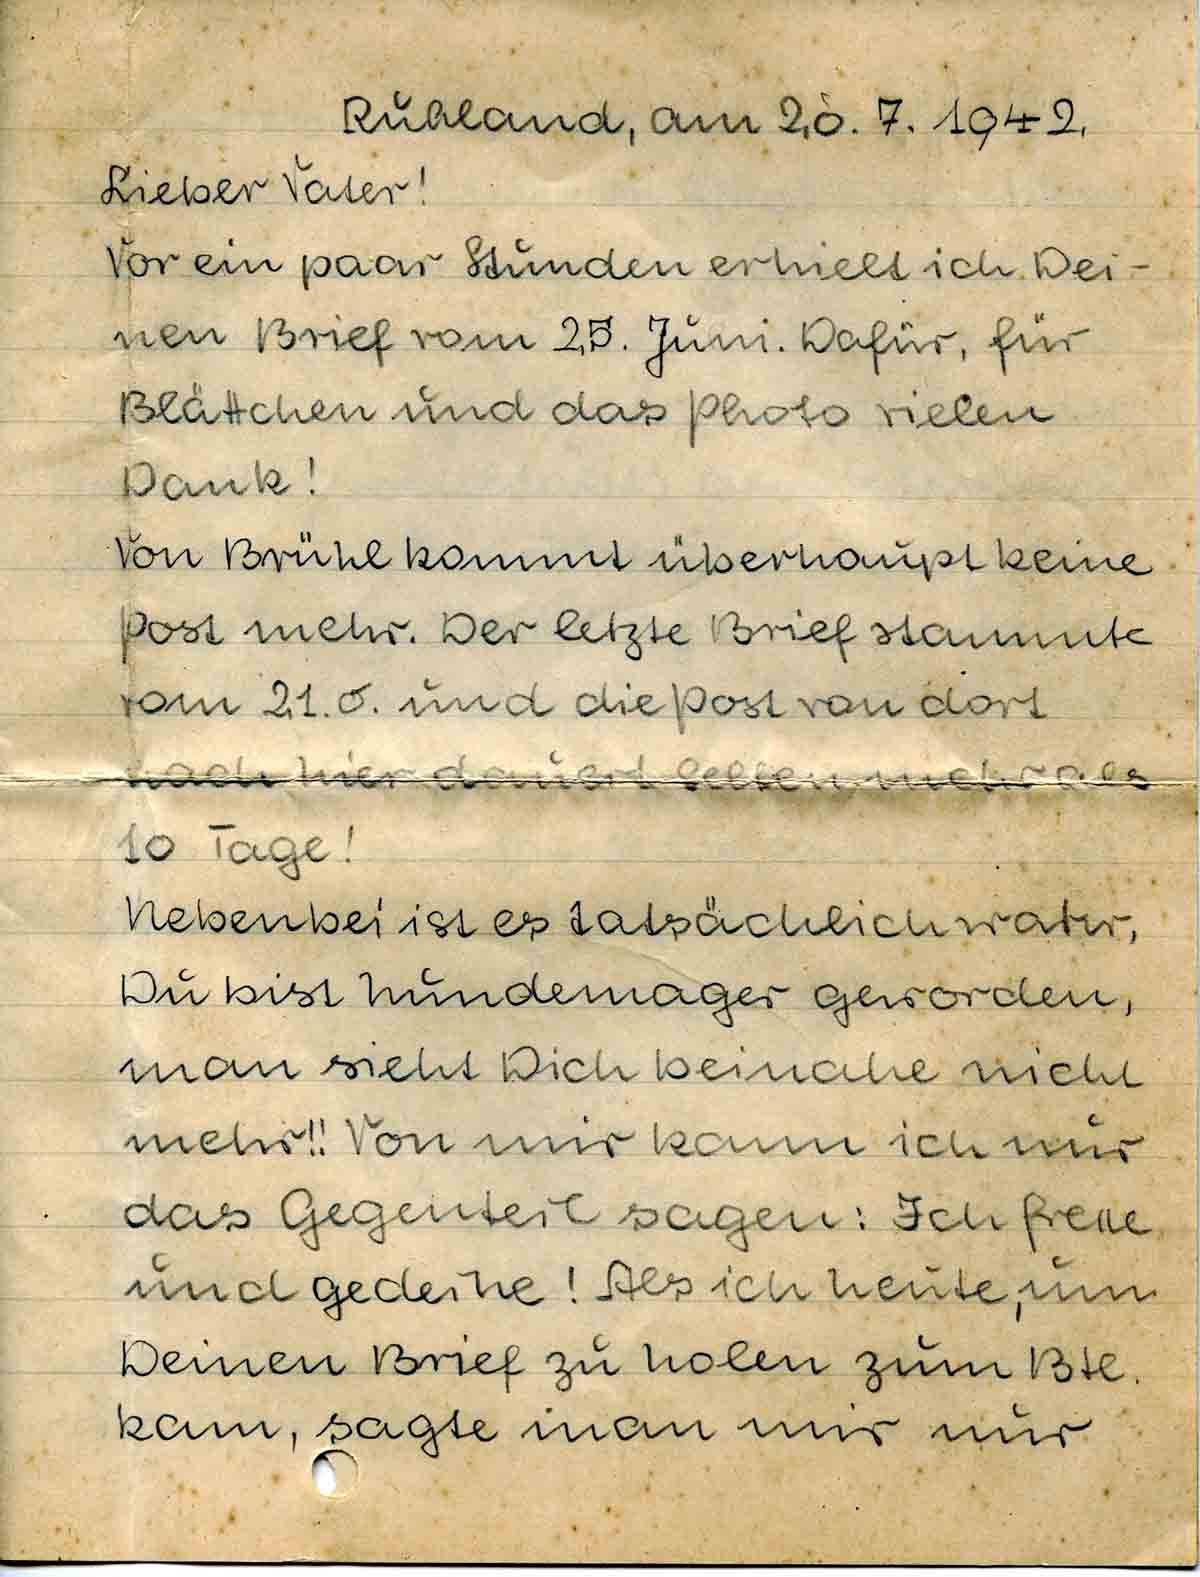 Rußland, am 26. 7. 1942.
Lieber Vater!
Vor ein paar Stunden erhielt ich Dei-
nen Brief vom 25. Juni. Dafür, für
Blättchen und das Photo vielen
Dank!
Von Brühl kommt überhaupt keine
Post mehr. Der letzte Brief stammte
vom 21. 6. und die Post von dort
nach hier dauert selten mehr als
10 Tage!
Nebenbei ist es tatsächlich wahr,
Du bist hundemager geworden,
man sieht Dich beinahe nicht
mehr!! Von mir kann ich nur
das Gegenteil sagen: Ich freue
und gedeihe! Als ich heute, um
Deinen Brief zu holen zum Btl.
kam, sagte man mir nur